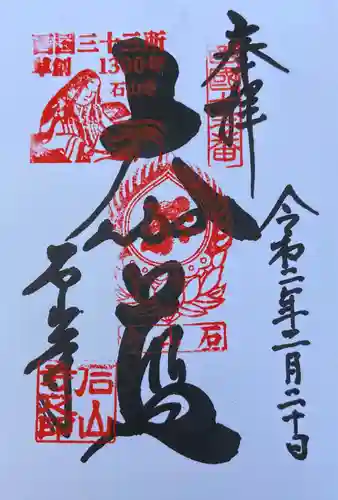 奉拝
令和二年二月二十日
西国三十三所
草創 1300年
石山寺
大伽藍
石山寺
石
石山寺印